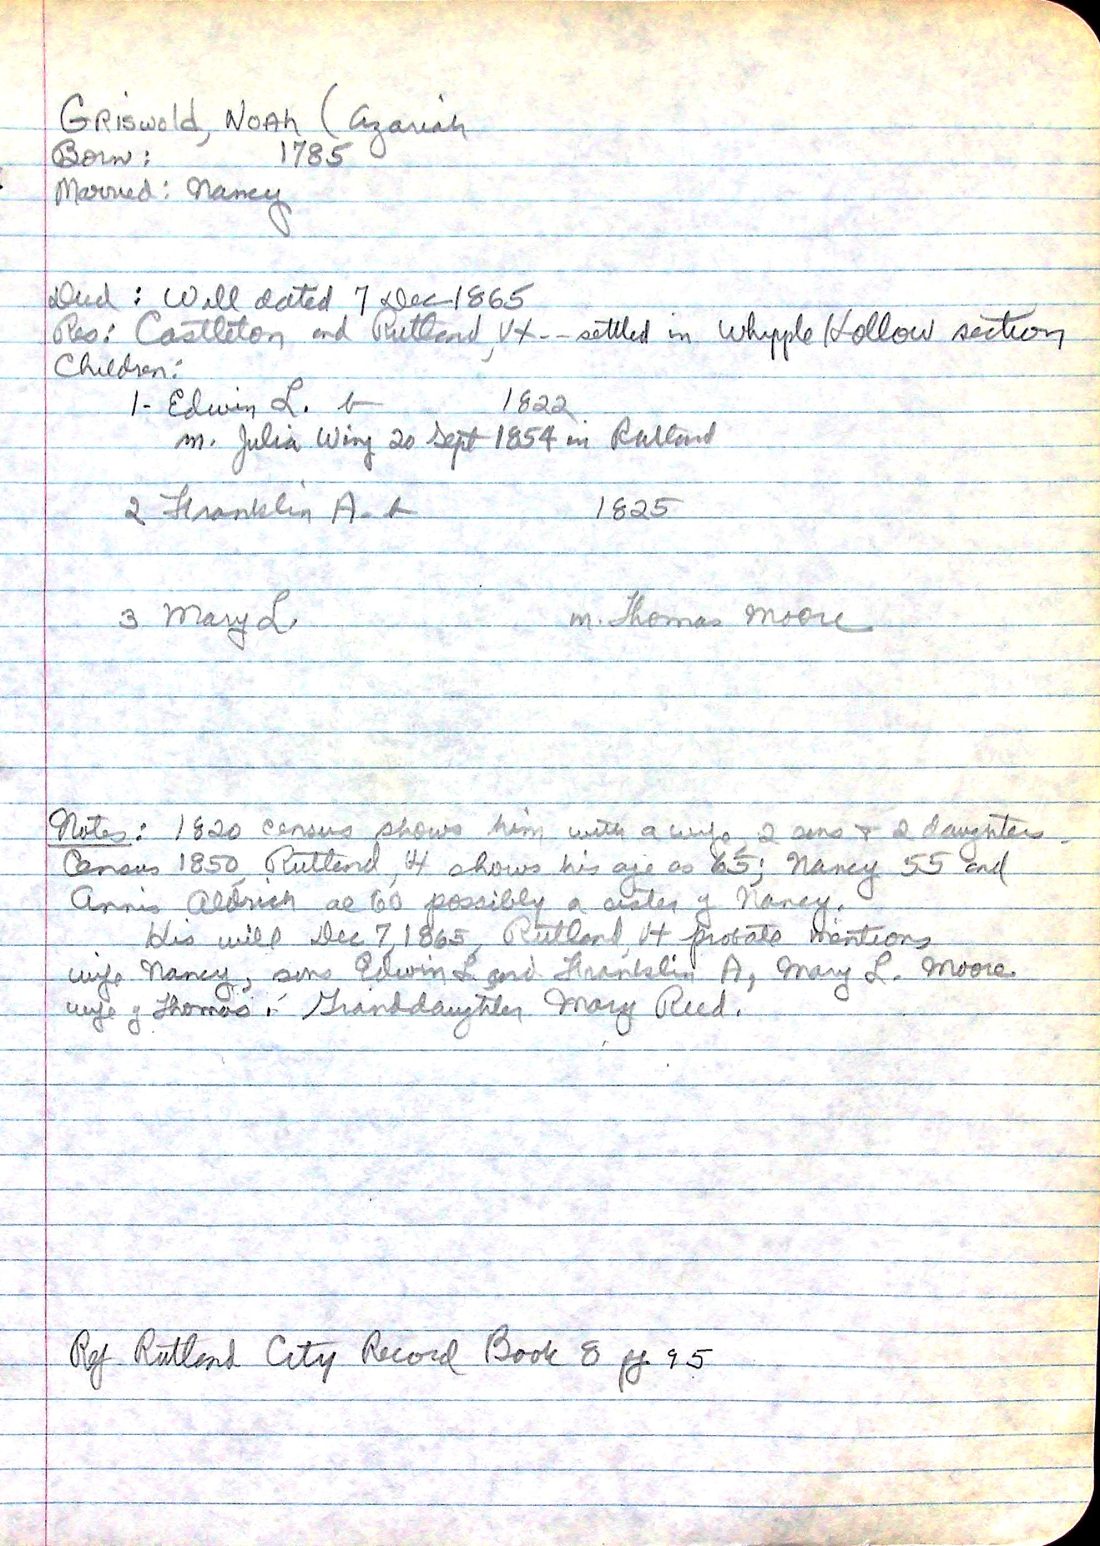 Griswold, Noah (Azariah
Born: 1785
Married: Nancy
Died: Will dated 7 Dec 1865
Res: Castleton and Rutland, Vt -- settled in Whipple Hollow section
Children:
1- Edwin L. b 1822
m. Julia Wing 20 Sept 1854 in Rutland
2 Franklin A. b 1825
3 Mary L. m. Thomas Moore
Notes: 1820 census shows him with a wife, 2 sons + 2 daughters.
Census 1850, Rutland, Vt shows his age as 65; Nancy 55 and
Annis Aldrich ae 60 possibly a sister of Nancy.
His will Dec 7, 1865, Rutland, Vt probate mentions
wife Nancy, sons Edwin L. and Franklin A, Mary L. Moore
wife of Thomas. Granddaughter Mary Reed.
Ref Rutland City Record Book 8 pg. 95